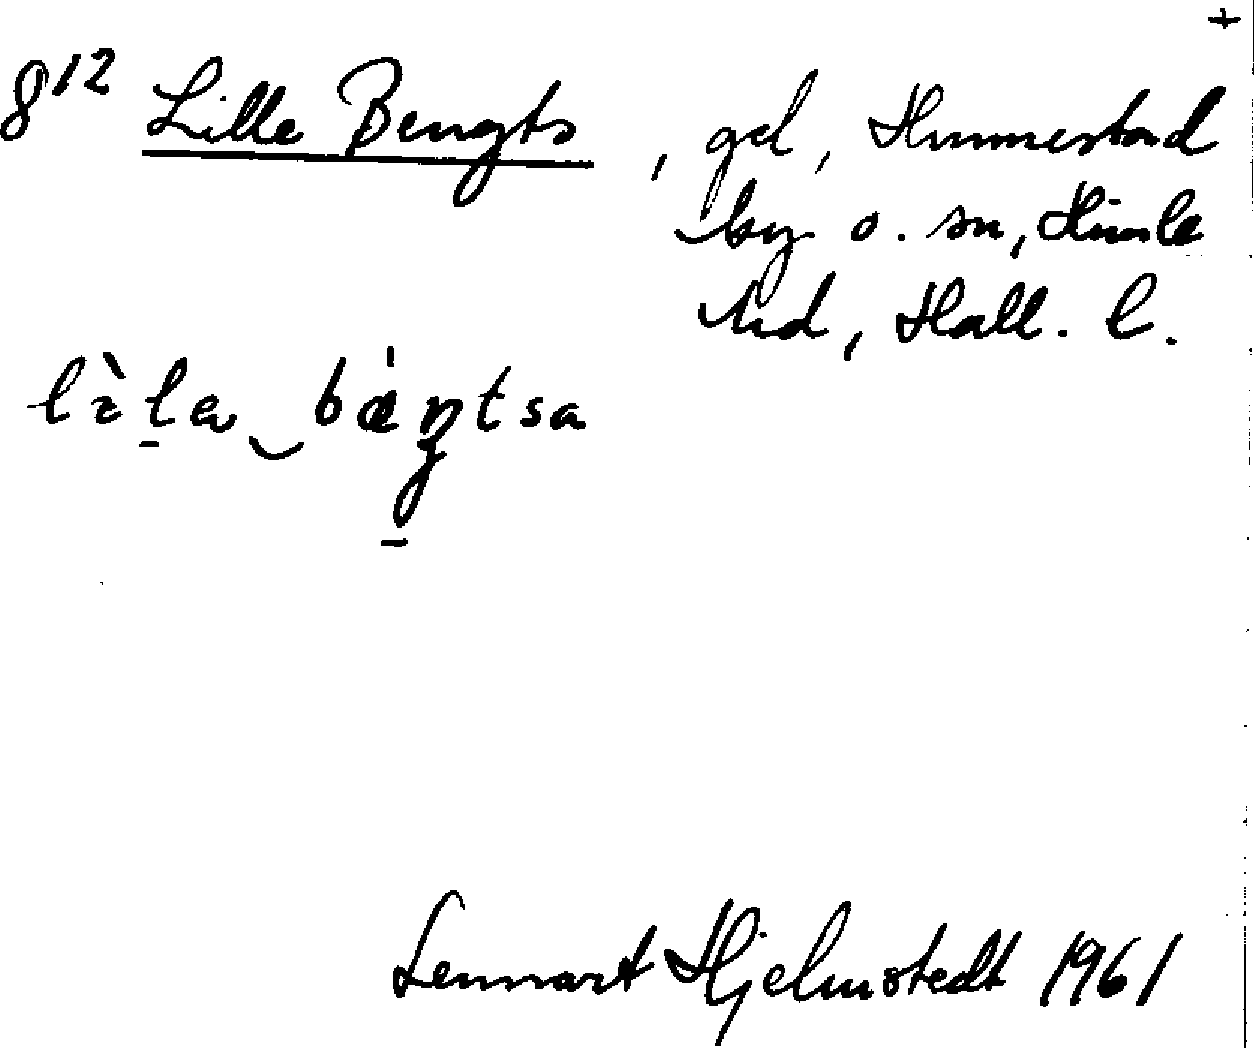 +
8¹² Lille Bengts, gd, Hunnestad
by o. sn, Himle
hd, Hall. l.
Lennart Hjelmstedt 1961